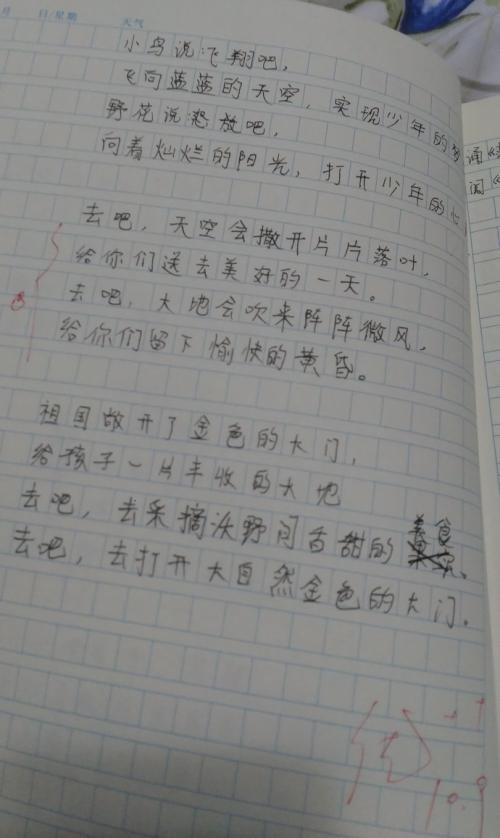 月 日/星期 天气
小鸟说飞翔吧，
飞向蓝蓝的天空，实现少年的
野花说怒放吧，
向着灿烂的阳光，打开少年的
去吧，天空会撒开片片落叶，
给你们送去美好的一天。
去吧，大地会吹来阵阵微风，
给你们留下愉快的黄昏。
祖国敞开了金色的大门，
给孩子一片丰收的大地
去吧，去采摘沃野间香甜的美食。
去吧，去打开大自然金色的大门。
10.9